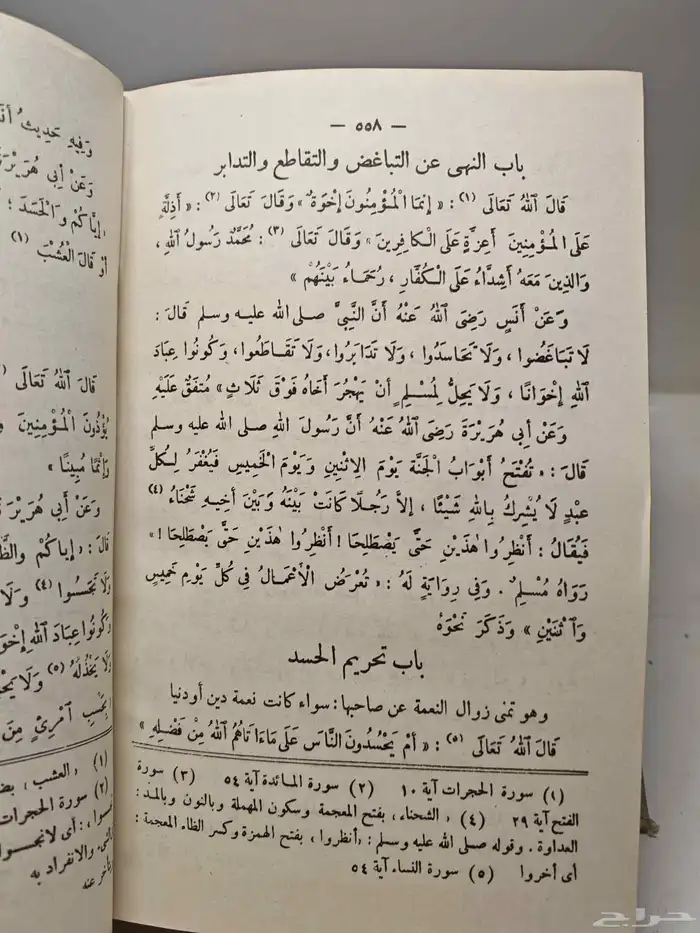 — ٥٥٨ —
باب النهى عن التباغض والتقاطع والتدابر
قَالَ اللهُ تَعَالَى (١) : « إِنَّمَا الْمُؤْمِنُونَ إِخْوَةٌ » وَقَالَ تَعَالَى (٢) : « أَذِلَّةٍ
عَلَى الْمُؤْمِنِينَ أَعِزَّةٍ عَلَى الْكَافِرِينَ » وَقَالَ تَعَالَى (٣) : مُحَمَّدٌ رَسُولُ اللهِ ،
وَالَّذِينَ مَعَهُ أَشِدَّاءُ عَلَى الْكُفَّارِ ، رُحَمَاءُ بَيْنَهُمْ »
وَعَنْ أَنَسٍ رَضِىَ اللهُ عَنْهُ أَنَّ النَّبِىَّ صلى الله عليه وسلم قَالَ :
لَا تَبَاغَضُوا ، وَلَا تَحَاسَدُوا ، وَلَا تَدَابَرُوا، وَلَا تَقَاطَعُوا، وَكُونُوا عِبَادَ
اللهِ إِخْوَانًا ، وَلَا يَحِلُّ لِمُسْلِمٍ أَنْ يَهْجُرَ أَخَاهُ فَوْقَ ثَلَاثٍ » مُتَّفَقٌ عَلَيْهِ
وَعَنْ أَبِى هُرَيْرَةَ رَضِىَ اللهُ عَنْهُ أَنَّ رَسُولَ اللهِ صلى الله عليه وسلم
قَالَ : « تُفْتَحُ أَبْوَابُ الْجَنَّةِ يَوْمَ الِاثْنَيْنِ وَيَوْمَ الْخَمِيسِ فَيُغْفَرُ لِكُلِّ
عَبْدٍ لَا يُشْرِكُ بِاللهِ شَيْئًا ، إِلَّا رَجُلًا كَانَتْ بَيْنَهُ وَبَيْنَ أَخِيهِ شَحْنَاءُ (٤)
فَيُقَالُ : أَنْظِرُوا هٰذَيْنِ حَتَّى يَصْطَلِحَا ! أَنْظِرُوا هٰذَيْنِ حَتَّى يَصْطَلِحَا ! »
رَوَاهُ مُسْلِمٌ . وَفِى رِوَايَةٍ لَهُ : « تُعْرَضُ الْأَعْمَالُ فِى كُلِّ يَوْمِ خَمِيسٍ
وَاثْنَيْنِ » وَذَكَرَ نَحْوَهُ
باب تحريم الحسد
وهو تمنى زوال النعمة عن صاحبها : سواء كانت نعمة دين أودنيا
قَالَ اللهُ تَعَالَى (٥) : « أَمْ يَحْسُدُونَ النَّاسَ عَلَى مَاءَاتَاهُمُ اللهُ مِنْ فَضْلِهِ »
(١) سورة الحجرات آية ١٠ (٢) سورة المائدة آية ٥٤ (٣) سورة
الفتح آية ٢٩ (٤) « الشحناء ، بفتح المعجمة وسكون المهملة وبالنون وبالمد :
العداوة . وقوله صلى الله عليه وسلم : « أنظروا ، بفتح الهمزة وكسر الظاء المعجمة :
أى أخروا (٥) سورة النساء آية ٥٤
وَفِيهِ حَدِيثُ
وَعَنْ أَبِى هُرَيْرَةَ
« إِيَّاكُمْ وَالْحَسَدَ ؛
أَوْ قَالَ الْعُشْبَ (١)
قَالَ اللهُ تَعَالَى
يُؤْذُونَ الْمُؤْمِنِينَ
وَإِثْمًا مُبِينًا »
وَعَنْ أَبِى هُرَيْرَ
قَالَ : « إِيَّاكُمْ وَالظَّ
وَلَا تَجَسَّسُوا (٤) وَلَا
وَكُونُوا عِبَادَ اللهِ إِخْوَا
وَلَا يَخْذُلُهُ (٥) وَلَا يَحْ
بِحَسْبِ امْرِئٍ مِنَ
(١) « العشب ، بض
(٢) سورة الحجرات
والانفراد به
حراج